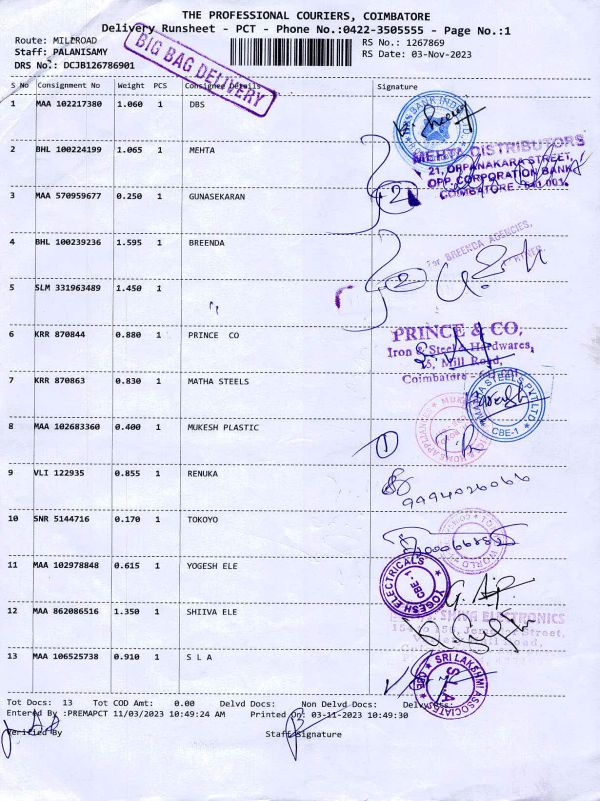 THE PROFESSIONAL COURIERS, COIMBATORE
Delivery Runsheet - PCT - Phone No.:0422-3505555 - Page No.:1
Route: MILLROAD
RS No.: 1267869
Staff: PALANISAMY
RS Date: 03-Nov-2023
DRS No.: DCJB126786901
BIG BAG DELIVERY
S No Consignment No Weight PCS Consignee Details Signature
1 MAA 102217380 1.060 1 DBS
2 BHL 100224199 1.065 1 MEHTA
MEHTA DISTRIBUTORS
21, OPPANAKARA STREET,
OPP. CORPORATION BANK,
COIMBATORE - 641 001.
3 MAA 570959677 0.250 1 GUNASEKARAN
2
4 BHL 100239236 1.595 1 BREENDA
For BREENDA AGENCIES,
2
5 SLM 331963489 1.450 1 "
6 KRR 870844 0.880 1 PRINCE CO
PRINCE & CO,
Iron & Steel, Hardwares,
Mill Road,
Coimbatore - 641 001
7 KRR 870863 0.830 1 MATHA STEELS
STEELS PVT LTD
CBE-1
8 MAA 102683360 0.400 1 MUKESH PLASTIC
1
9 VLI 122935 0.855 1 RENUKA
9994026066
10 SNR 5144716 0.170 1 TOKOYO
WORLD
11 MAA 102978848 0.615 1 YOGESH ELE
YOGESH ELECTRICALS
CBE - 1
12 MAA 862086516 1.350 1 SHIIVA ELE
ELECTRONICS
Street,
13 MAA 106525738 0.910 1 S L A
SRI LAKSHMI ASSOCIATES
S.L.A
Tot Docs: 13 Tot COD Amt: 0.00 Delvd Docs: Non Delvd Docs:
Entered By :PREMAPCT 11/03/2023 10:49:24 AM Printed On: 03-11-2023 10:49:30
Verified By Staff Signature